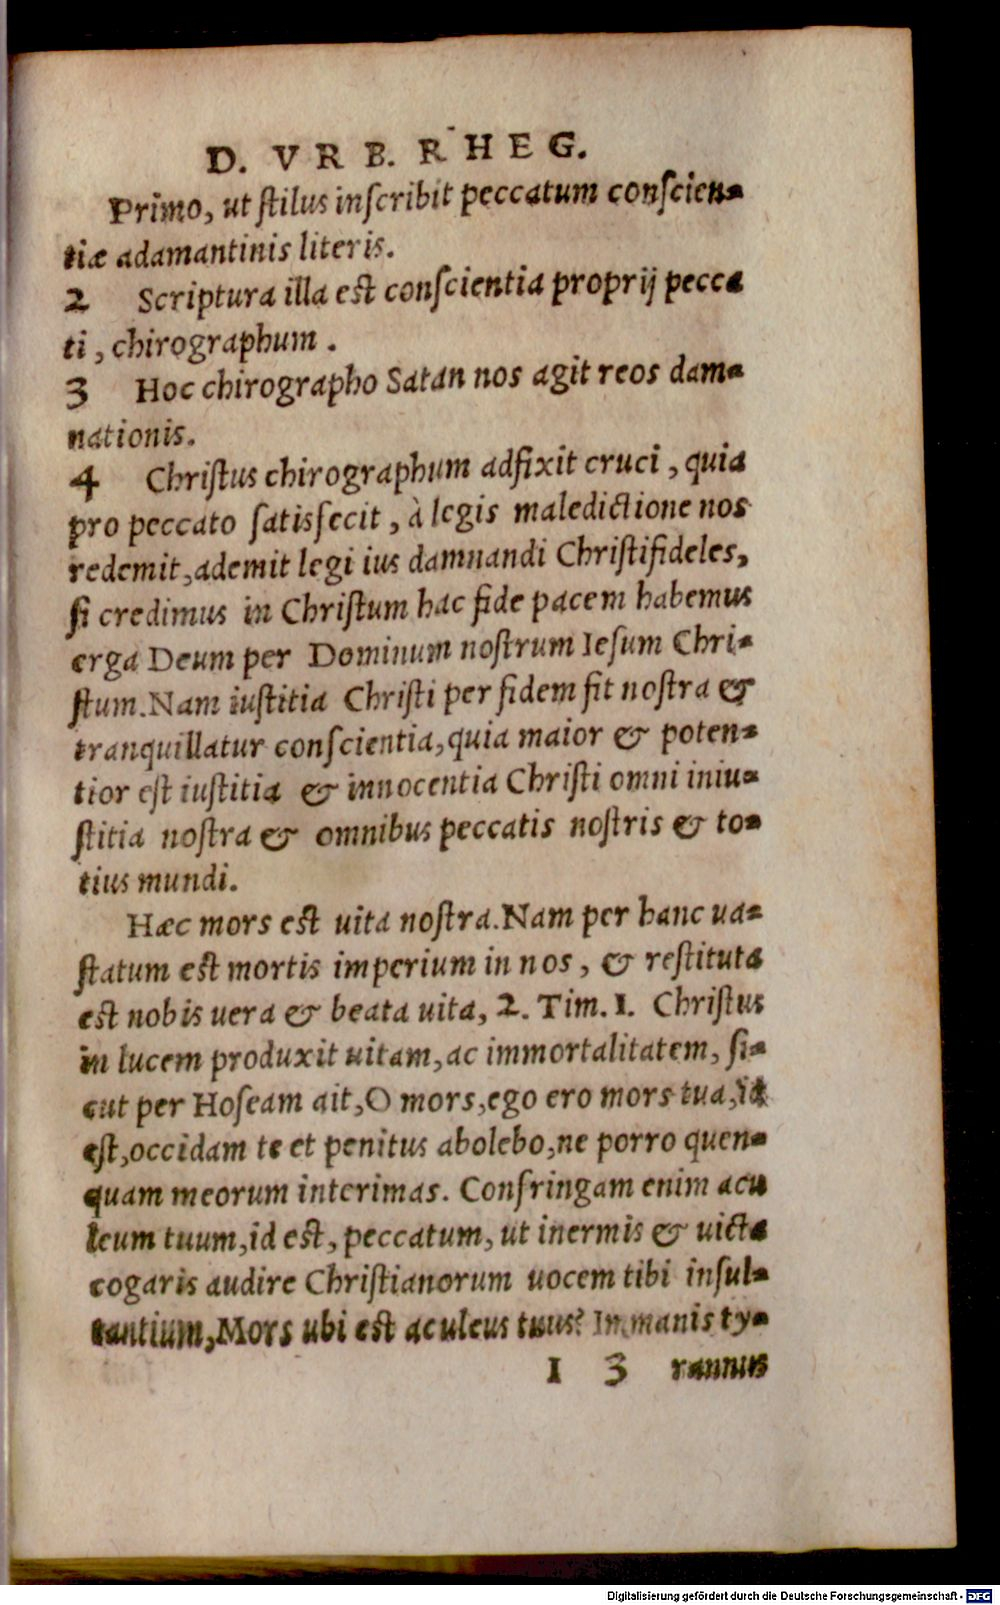 D. VRB. RHEG.
Primo, ut ſtilus inſcribit peccatum conſcien-
tiæ adamantinis literis.
2 Scriptura illa est conſcientia proprij pecca
ti, chirographum.
3 Hoc chirographo Satan nos agit reos dam-
nationis.
4 Chriſtus chirographum adfixit cruci, quia
pro peccato ſatisfecit, à legis maledictione nos
redemit, ademit legi ius damnandi Chriſtifideles,
ſi credimus in Chriſtum hac fide pacem habemus
erga Deum per Dominum noſtrum Ieſum Chri-
ſtum. Nam iuſtitia Chriſti per fidem fit noſtra &
tranquillatur conſcientia, quia maior & poten-
tior eſt iuſtitia & innocentia Chriſti omni iniu-
ſtitia noſtra & omnibus peccatis noſtris & to-
tius mundi.
Hæc mors est uita noſtra. Nam per hanc ua-
ſtatum est mortis imperium in nos, & reſtituta
est nobis uera & beata uita, 2. Tim. 1. Chriſtus
in lucem produxit uitam, ac immortalitatem, ſi-
cut per Hoſeam ait, O mors, ego ero mors tua, id
eſt, occidam te et penitus abolebo, ne porro quen-
quam meorum interimas. Confringam enim acu
leum tuum, id est, peccatum, ut inermis & uicta
cogaris audire Chriſtianorum uocem tibi inſul-
tantium, Mors ubi est aculeus tuus? Immanis ty-
I 3 rannus
Digitalisierung gefördert durch die Deutsche Forschungsgemeinschaft - DFG